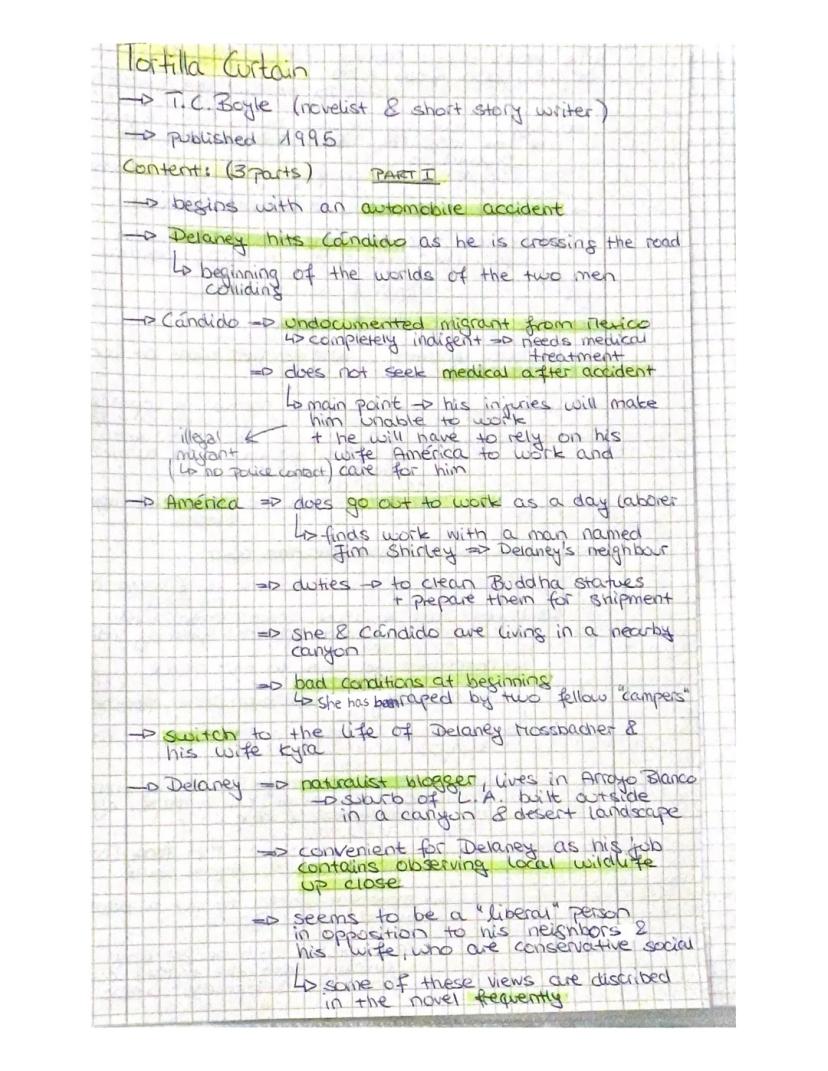 Tortilla Curtain
→ T.C. Boyle (novelist & short story writer)
→ published 1995
Content: (3 parts) PART I
→ begins with an automobile accident
→ Delaney hits Cándido as he is crossing the road
↳ beginning of the worlds of the two men
colliding
→ Cándido ⇒ undocumented migrant from Mexico
↳ completely indigent ⇒ needs medical
treatment
⇒ does not seek medical after accident
↳ main point → his injuries will make
him unable to work
illegal ← + he will have to rely on his
migrant wife América to work and
(↳ no police contact) care for him
→ América ⇒ does go out to work as a day laborer
↳ finds work with a man named
Jim Shirley ⇒ Delaney's neighbour
⇒ duties → to clean Buddha statues
+ prepare them for shipment
⇒ she & Cándido are living in a nearby
canyon
⇒ bad conditions at beginning
↳ she has been raped by two fellow "campers"
→ switch to the life of Delaney Mossbacher &
his wife Kyra
→ Delaney ⇒ naturalist blogger, lives in Arroyo Blanco
→ suburb of L.A. built outside
in a canyon & desert landscape
⇒ convenient for Delaney as his job
contains observing local wildlife
up close
⇒ seems to be a "liberal" person
in opposition to his neighbors &
his wife, who are conservative social
↳ some of these views are discribed
in the novel frequently